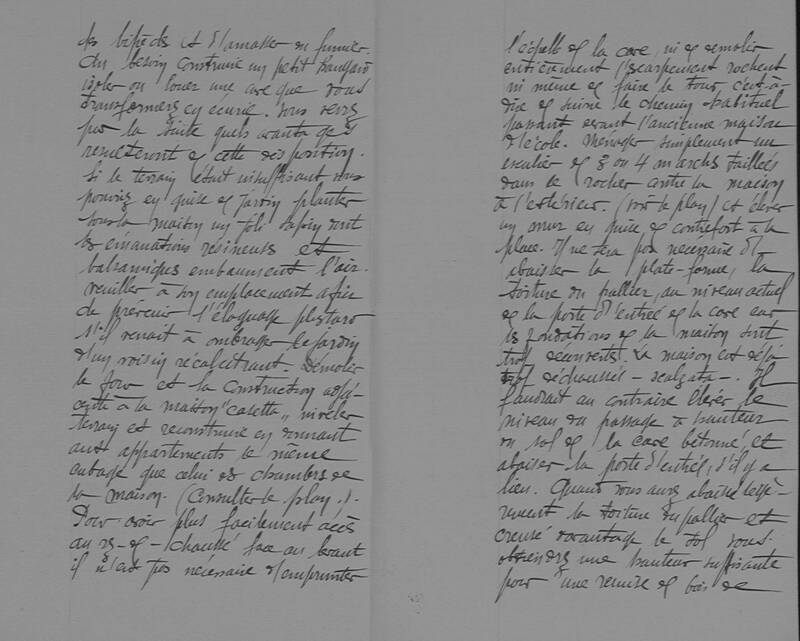 des bipèds et d'amasser du fumier.
Au besoin construire un petit hangard
isoler ou louer une cave que vous
transformerez en écurie. Vous verrez
par la suite quels avantages
resulteront de cette disposition.
Si le terrain était insuffisant vous
pouviez en guise de jardin planter
sous la maison un joli sapin dont
les émanations résineuses et
balsamiques embaument l'air.
veiller à son emplacement afin
de prévenir l'éloquasse plus tard
s'il venait à ombrasser le jardin
d'un voisin récalcitrant. Démolir
le four et la construction adja-
cente à la maison "casetta" niveler
terrain et reconstruire en donnant
aux appartements le même
cubage que celui des chambres de
la maison. (Consulter le plan.).
Pour avoir plus facilement accès
au rez-de-chaussé face au levant
il n'est pas necessaire d'emprunter
l'échelle de la cave, ni de démolir
entièrement l'escarpement rocheux
ni même de faire le tour c'est-à-
dire de suivre le chemin habituel
passant devant l'ancienne maison
d'école. Menager simplement un
escalier de 3 ou 4 marches taillées
dans le rocher contre la maison
à l'extérieur. (voir le plan) et élever
un mur en guise de contrefort à la
place. Il ne sera pas necessaire d'
abaisser la plate-forme, la
toiture du pallier, au niveau actuel
de la porte d'entrée de la cave car
les fondations de la maison sont
trop decouverts. La maison est déjà
trop déchaussée - scalzata -. Il
faudrait au contraire élever le
niveau du passage à hauteur
du sol de la cave bétonné, et
abaiser la porte d'entrée, s'il y a
lieu. Quand vous aurez abaissé légè-
rement la toiture du pallier et
creusé davantage le sol vous
obtiendrez une hauteur suffisante
pour une remise de bois de